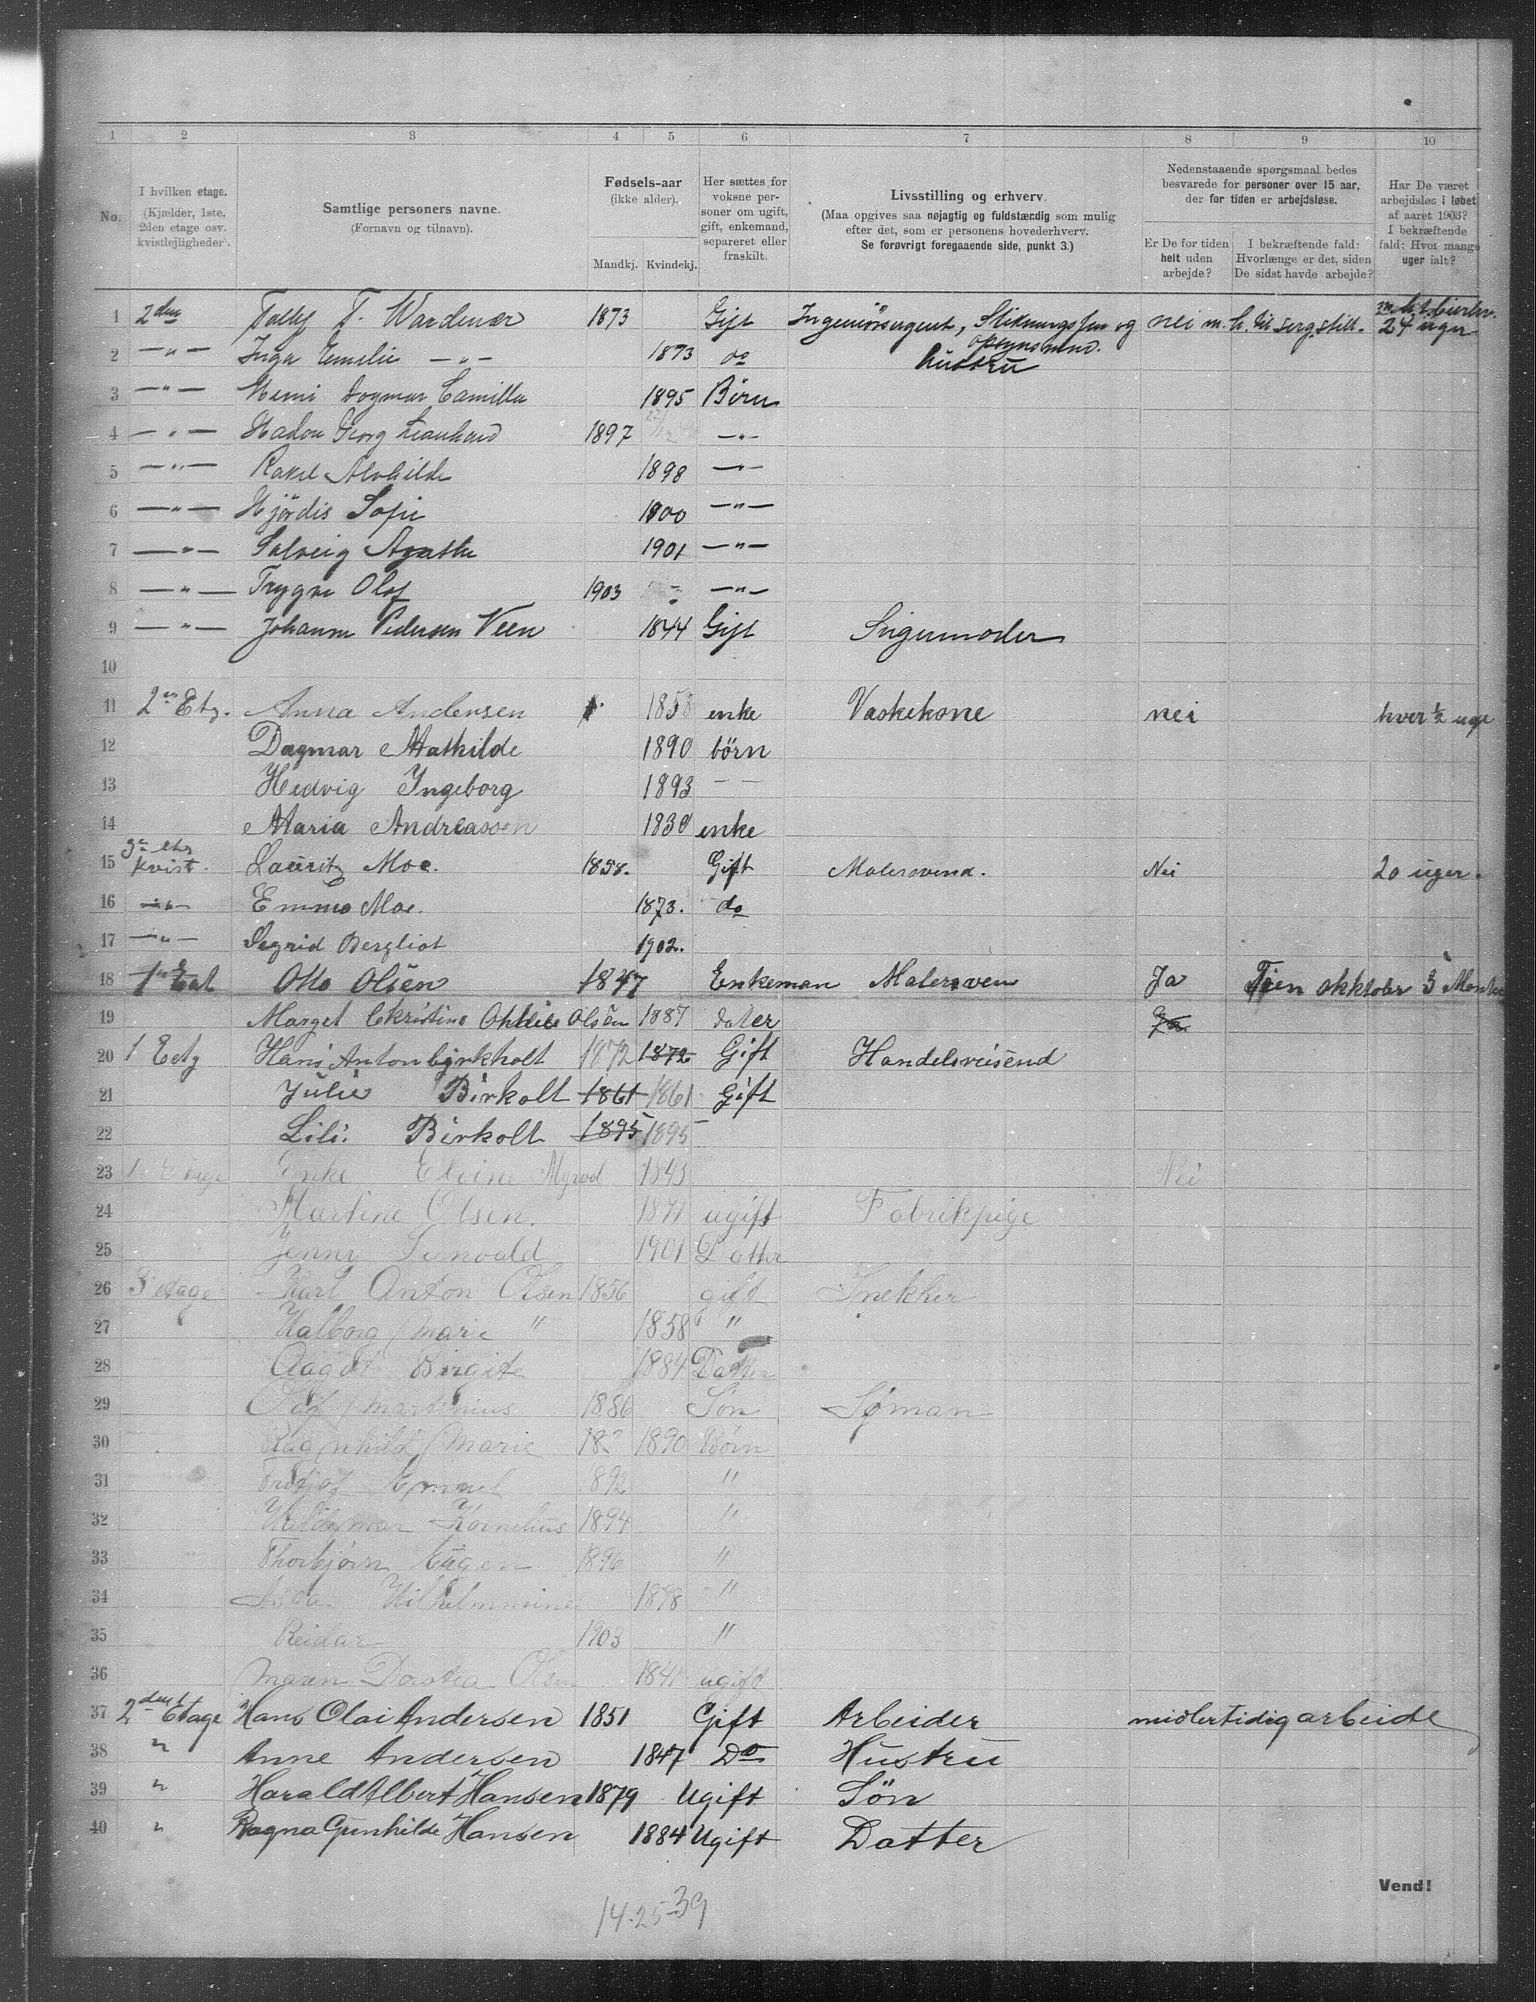 1 2 3 4 5 6 7 8 9 10
No.
I hvilken etage.
(Kjælder, 1ste,
2den etage osv.
kvistlejligheder).
Samtlige personers navne.
(Fornavn og tilnavn).
Fødsels-aar
(ikke alder).
Mandkj. Kvindekj.
Her sættes for
voksne per-
soner om ugift,
gift, enkemand,
separeret eller
fraskilt.
Livsstilling og erhverv.
(Maa opgives saa nøjagtig og fuldstændig som mulig
efter det, som er personens hovederhverv.
Se forøvrigt foregaaende side, punkt 3.)
Nedenstaaende spørgsmaal bedes
besvarede for personer over 15 aar,
der for tiden er arbejdsløse.
Er De for tiden
helt uden
arbejde?
I bekræftende fald:
Hvorlænge er det, siden
De sidst havde arbejde?
Har De været
arbejdsløs i løbet
af aaret 1903?
I bekræftende
fald: Hvor mange
uger ialt?
1 2den T. Wardenær 1873 Gift nei 24 uger
opsynsmnd.
2 —"— Inga Emelie —"— 1873 do hustru
3 —"— Dagmar Camilla 1895 Børn
4 —"— Georg 1897 —"—
5 —"— Rakel Alvhilde 1898 —"—
6 —"— Hjördis Sofie 1900 —"—
7 —"— Solveig Agathe 1901 —"—
8 —"— Trygve Olaf 1903 —"—
9 —"— Johanne Pedersen Veen 1844 Gift Svigermoder
10
11 2en Etg. Anna Andersen 1858 enke Vaskekone nei hver ½ uge
12 Dagmar Mathilde 1890 börn
13 Hedvig Ingeborg 1893 — —
14 Maria Andreassen 1830 enke
15 3die etg kvist. Lauritz Moe. 1858. Gift Malersvend. Nei 20 uger.
16 —"— Emma Moe. 1873. do
17 —"— Sigrid Bergliot 1902.
18 1ste Etat Otto Olsen 1847 Enkeman Malersven Ja Sien okktober 3 Monter
19 Marget Christine Othilie Olsen 1887 dater Ja
20 1 Eetg Hans Anton Birkholt 1872 1872 Gift Handelsreisend
21 Julie Birkolt 1861 1861 Gift
22 Lili Birkolt 1895 1895
23 1 Etage Enke Elvine Myrvod 1843 Nei
24 Martine Olsen. 1871 ugift Fabrikpige
25 Jenny 1901 Datter
26 3 etage Karl Anton Olsen 1856 gift Snekker
27 Valborg Marie " 1858 "
28 Aagot Birgite 1884 Datter
29 Olaf Martinius 1886 Søn Sjøman
30 Ragnhild Marie 1890 Børn
31 Fritjof 1892 "
32 Kornelius 1894 "
33 Thorbjørn Eugen 1896 "
34 Vilhelmmine 1898 "
35 Reidar 1903 "
36 Maren Dorotea Olsen 1841 ugift
37 2den Etage Hans Olai Andersen 1851 Gift Arbeider midlertidig arbeide
38 " Anne Andersen 1847 Do Hustru
39 " Harald Albert Hansen 1879 Ugift Sön
40 " Ragna Gunhilde Hansen 1884 Ugift Datter
Vend!
14-25-39